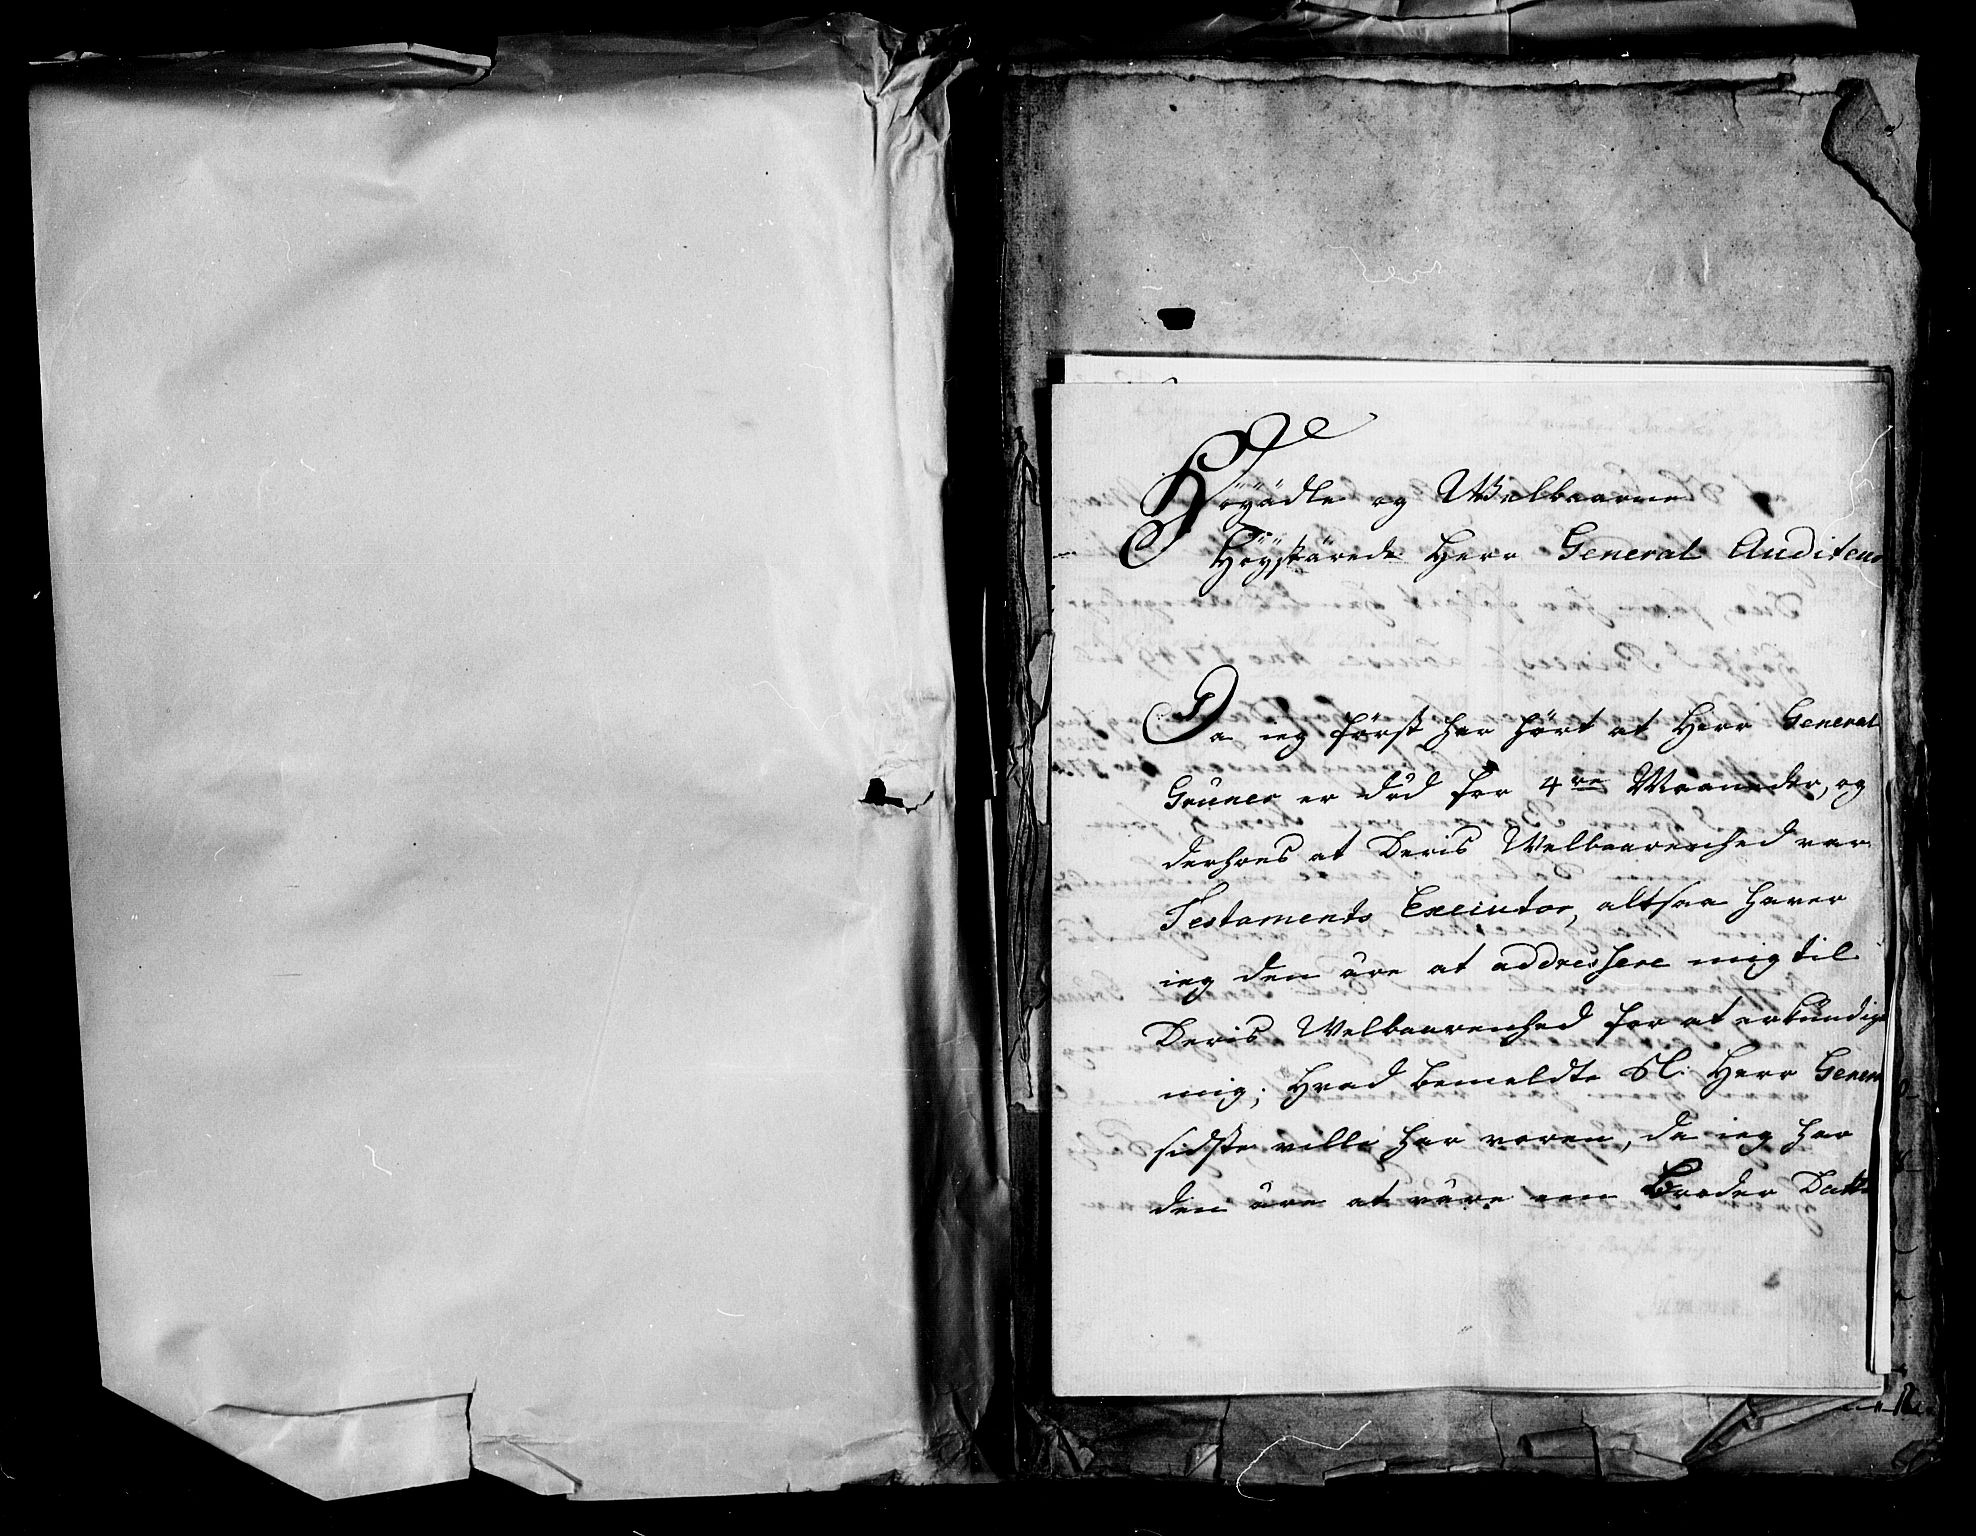 Höyädle og Welbaarne
Höystärede Herr General Auditeur
Da ieg först har hört at Herr General
Grüner er död for 4re Maaneder, og
derhoes at Deris Welbaarenhed var
Testaments Executor, altsaa haver
ieg den äre at addressere mig til
Deris Welbaarenhed for at erkündige
mig; hvad bemeldte Sl: Herr General
sidste ville har voren, da ieg har
den äre at väre een Broder Datter